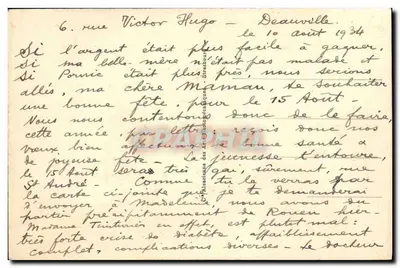 6. rue Victor Hugo - Deauville.
le 10 août 1934
Si l'argent était plus facile à gagner,
si ma belle-mère n'était pas malade et
si Pornic était plus près, nous serions
allés, ma chère Maman, te souhaiter
une bonne fête, pour le 15 Août.
Nous nous contentons donc de le faire,
cette année, par lettre. Reçois donc nos
vœux bien affectueux de bonne santé &
de joyeuse fête. La jeunesse t'entoure,
le 15 Août sera très gai, sûrement, rue
St André. Comme tu le verras par
la carte ci-jointe que je te demanderai
d'envoyer à Madeleine, nous avons dû
partir précipitamment de Rouen hier.
Madame en effet, est plutôt mal:
très forte crise de diabète, affaiblissement
complet, complications diverses. Le docteur